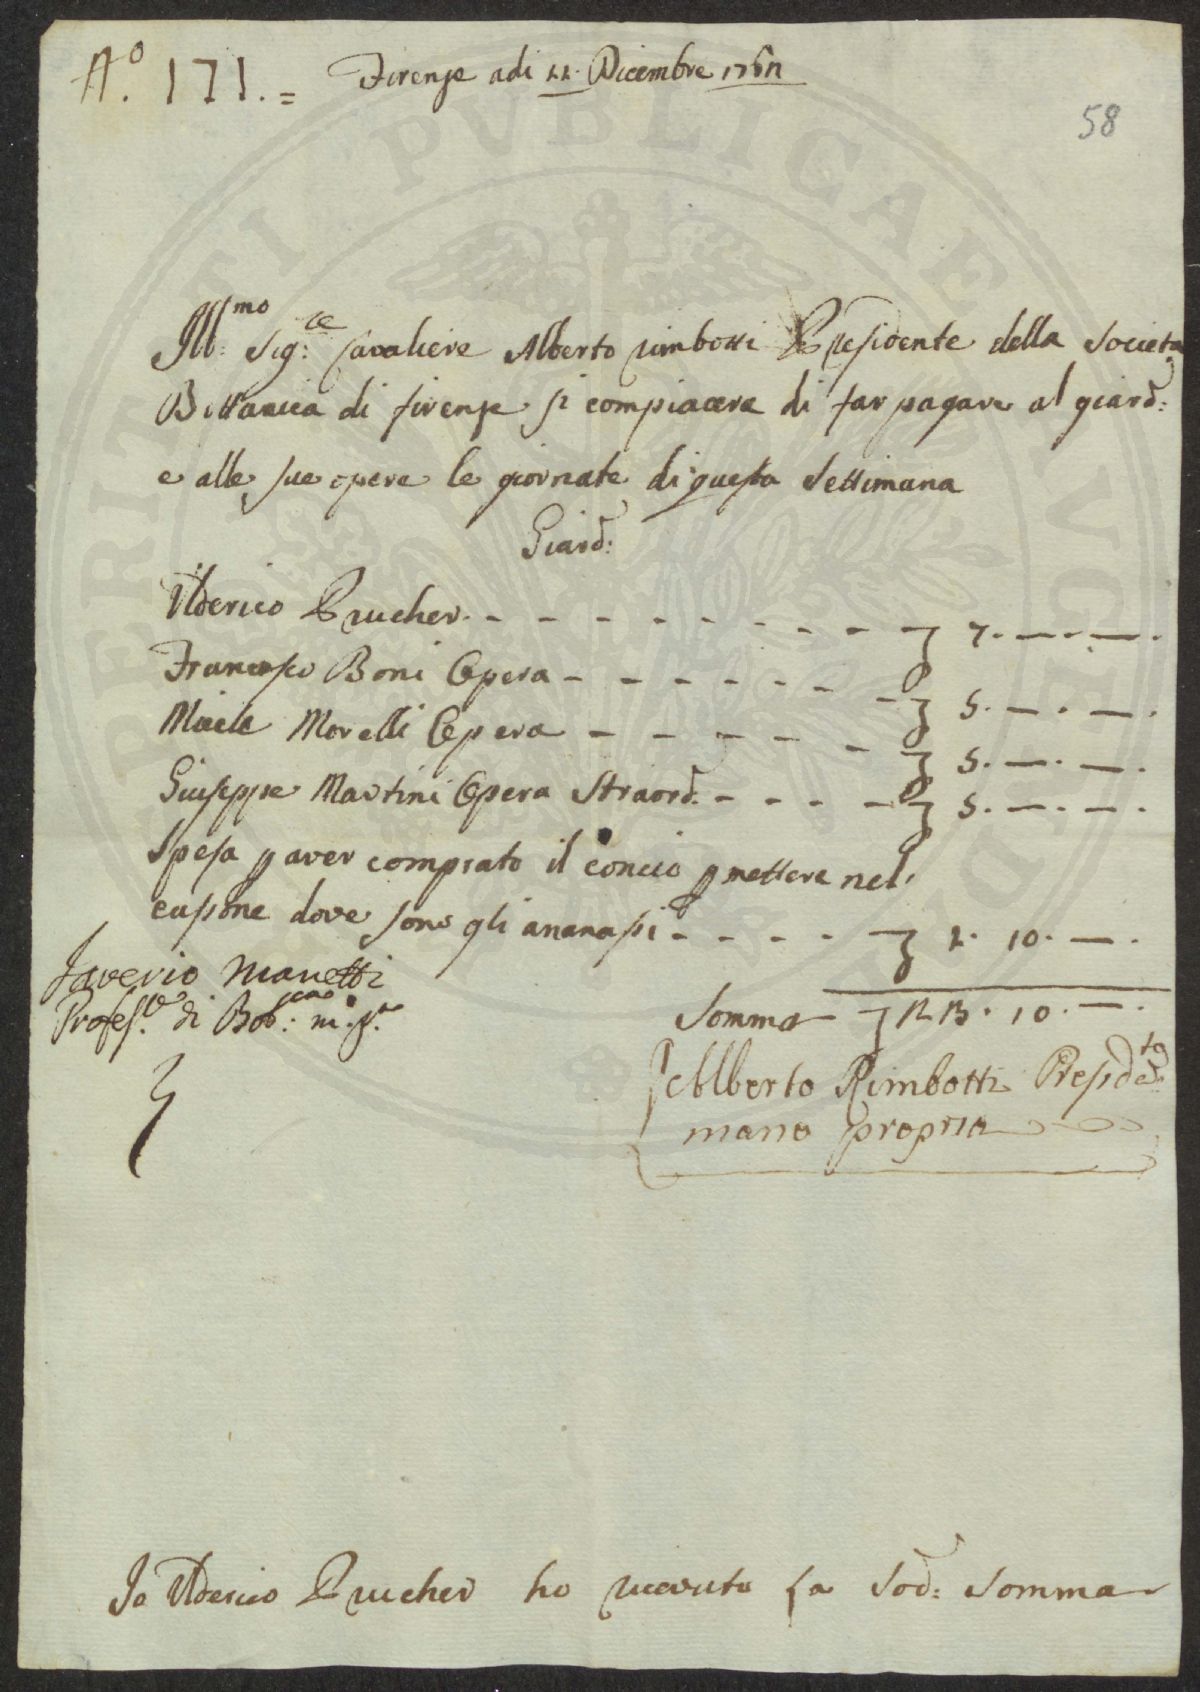 A.º 171.=
Firenze adi 22. Dicembre
58
Ill:mo Sig:re Cavaliere Alberto rimbotti Presidente della Societa
Bottanica di firenze si compiacera di far pagare al giard:
e alle sue opere le giornate di questa Settimana
Giard:
Ulderico Prucher. - - - - - - - - - 7. — . — .
Francesco Boni Opera - - - - - - - 5. — . — .
Miele Morelli Opera - - - - - - - 5. — . — .
Giuseppe Martini Opera Straord. - - - - 5. — . — .
Spesa p aver comprato il concio p mettere nel
casone dove sono gli ananasi - - - - 10. — .
Saverio Manetti
Profes.re di Bot:ca m. p.
Somma 10. — .
Alberto Rimbotti Preside:te
mano propria
Io Ulderico Prucher ho riceuto la Sod: Somma
PUBLICAE